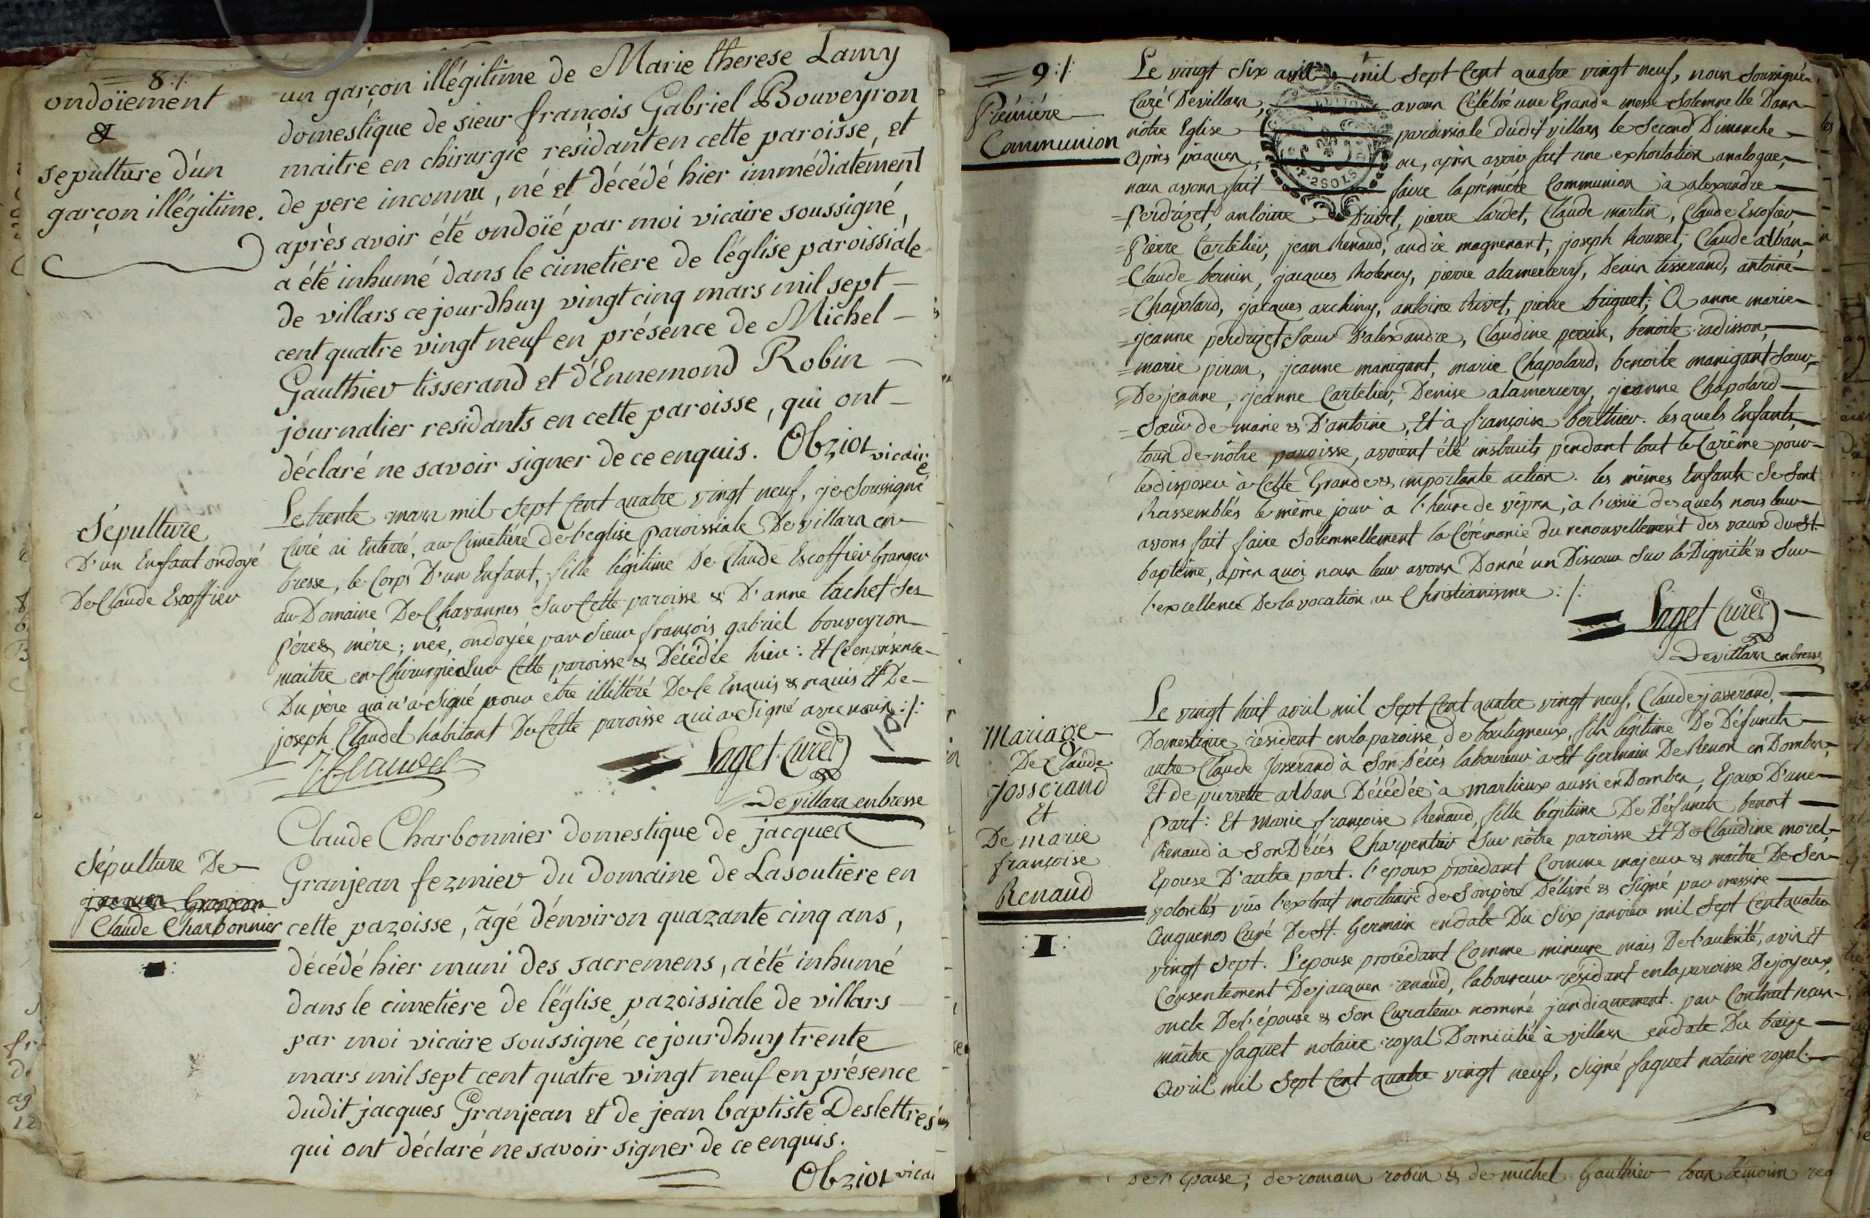 8:/:
ondoïement
&
sepulture d'un
garçon illégitime.
un garçon illégitime de Marie therese Lamy
domestique de sieur françois Gabriel Bouveyron
maitre en chirurgie résidant en cette paroisse, et
de pere inconnu, né et décédé hier immédiatement
après avoir été ondoïé par moi vicaire soussigné,
a été inhumé dans le cimetiere de l'église paroissiale
de villars ce jourdhuy vingt cinq mars mil sept
cent quatre vingt neuf en présence de Michel
Gauthier tisserand et d'Ennemond Robin
journalier residants en cette paroisse, qui ont
déclaré ne savoir signer de ce enquis. Obriot vicaire
Sépulture
D'un Enfant ondoyé
De Claude Escoffier
Le trente mars mil sept Cent quatre vingt neuf, je soussigné
Curé ai Enterré, au Cimetiére de l'eglise paroissiale De villars en
bresse, le Corps D'un Enfant, fille légitime De Claude Escoffier Granger
au Domaine De Chavannes sur Cette paroisse & D'anne tachet ses
péres mère; née, ondoyée par sieur françois gabriel bouveyron
maitre en Chirurgie sur Cette paroisse & Décédée hier: Et Ce en présence
Du père qui n'a signé pour etre illittéré De Ce Enquis & requis Et De
joseph Claudel habitant De Cette paroisse qui a signé avec nous :/:
J Claudel
Saget Curé
De villars en bresse
Sépulture De
Claude Charbonnier
Claude Charbonnier domestique de jacques
Granjean fermier du domaine de Lasoutiere en
cette paroisse, âgé d'environ quarante cinq ans,
décédé hier muni des sacremens, a été inhumé
dans le cimetiere de l'église paroissiale de villars
par moi vicaire soussigné ce jourdhuy trente
mars mil sept cent quatre vingt neuf en présence
dudit jacques Granjean et de jean baptiste Deslettres
qui ont déclaré ne savoir signer de ce enquis.
Obriot vicai
9:/:
Prémiére
Communion
Le vingt six avril mil sept Cent quatre vingt neuf, nous soussigné
Curé De villars, avons Célébré une Grande messe solemnelle Dans
nôtre Eglise paroissiale dudit villars le second Dimanche
après pâques, ou, après avoir fait une exhortation analogue,
nous avons fait faire la prémiére Communion à alexandre
perdriget, antoine Drivet, pierre lardet, Claude martin, Claude Escofier
pierre Cartelier, jean Renaud, andré magnenant, joseph Rousset, Claude alban,
Claude bernin, jacques Robercy, pierre alamercery, Denis tisserand, antoine
Chapolard, jacques archiny, antoine Rivet, pierre briguet; & anne marie
jeanne perdriget, sœur D'alexandre, Claudine perrin, benoite radisson,
marie piron, jeanne manigant, marie Chapolard, benoite manigant sœur,
De jeanne, jeanne Cartelier, Denise alamercery, jeanne Chapolard
sœur de marie & D'antoine, Et à françoise berthier. lesquels Enfants,
tous de nôtre paroisse, avoient été instruits pendant tout le Carême pour
les disposer à Cette Grande & importante action. les mêmes Enfants se sont
Rassemblés le même jour à l'heure de vêpres, à l'issüe desquels nous leur
avons fait faire solemnellement la Cérémonie du renouvellement des vœux du St
baptême, après quoi nous leur avons Donné un Discour sur la Dignité & sur
l'excellence De la vocation au Christianisme :/:
Saget Curé
De villars en bresse
Mariage
De Claude
Josserand
Et
De marie
françoise
Renaud
:I:
Le vingt huit avril mil sept Cent quatre vingt neuf, Claude josserand,
Domestique résident en la paroisse de bouligneux, fils légitime De Défunct
autre Claude Josserand à son Décés laboureur à St Germain De Renon en Dombes,
Et de pierrette alban Décédée à marlieux aussi en Dombes, Epoux D'une
part: Et Marie françoise Renaud, fille legitime De Défunct benoit
Renaud à son Décés Charpentier sur nôtre paroisse Et De Claudine morel
Epouse D'autre part. l'epoux procédant Comme majeur & maitre De ses
volontés vüs l'extrait mortuaire de son père Délivré & signé par messire
Auguenos Curé De St. Germain en date Du six janvier mil sept Cent quatre
vingt sept. L'epouse procédant Comme mineure mais De l'autorité, avis Et
Consentement De jacques renaud, laboureur résidant en la paroisse De joyeux,
oncle De l'épouse & son Curateur nommé juridiquement. par Contrat reçu
maitre faguet notaire royal Domicilié à villars en date Du treize
avril mil sept Cent quatre vingt neuf, signé faguet notaire royal.
de l'epouse; de romain robin & de michel Gauthier tous témoins req